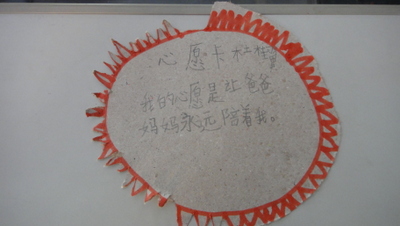 心愿卡
我的心愿是让爸爸
妈妈永远陪着我。